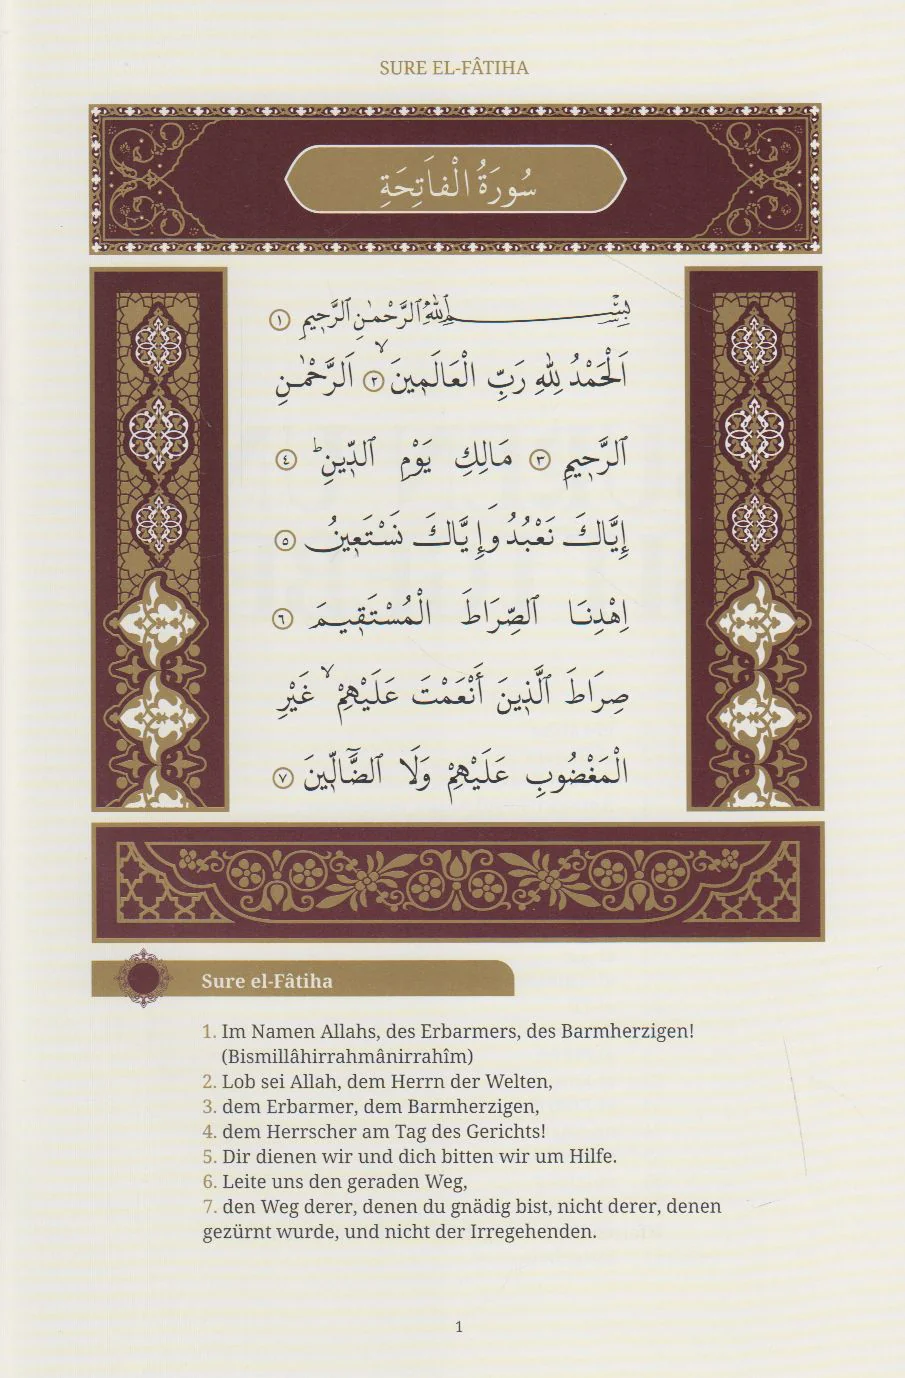 SURE EL-FÂTIHA
سُورَةُ الْفَاتِحَةِ
بِسْمِ اللّٰهِ الرَّحْمٰنِ الرَّحِيمِ ١
اَلْحَمْدُ لِلّٰهِ رَبِّ الْعَالَمِينَۙ ٢ اَلرَّحْمٰنِ
الرَّحِيمِ ٣ مَالِكِ يَوْمِ الدِّينِۜ ٤
إِيَّاكَ نَعْبُدُ وَإِيَّاكَ نَسْتَعِينُ ٥
اِهْدِنَا الصِّرَاطَ الْمُسْتَقِيمَ ٦
صِرَاطَ الَّذِينَ أَنْعَمْتَ عَلَيْهِمْۙ غَيْرِ
الْمَغْضُوبِ عَلَيْهِمْ وَلَا الضَّٓالِّينَ ٧
Sure el-Fâtiha
1. Im Namen Allahs, des Erbarmers, des Barmherzigen!
(Bismillâhirrahmânirrahîm)
2. Lob sei Allah, dem Herrn der Welten,
3. dem Erbarmer, dem Barmherzigen,
4. dem Herrscher am Tag des Gerichts!
5. Dir dienen wir und dich bitten wir um Hilfe.
6. Leite uns den geraden Weg,
7. den Weg derer, denen du gnädig bist, nicht derer, denen
gezürnt wurde, und nicht der Irregehenden.
1